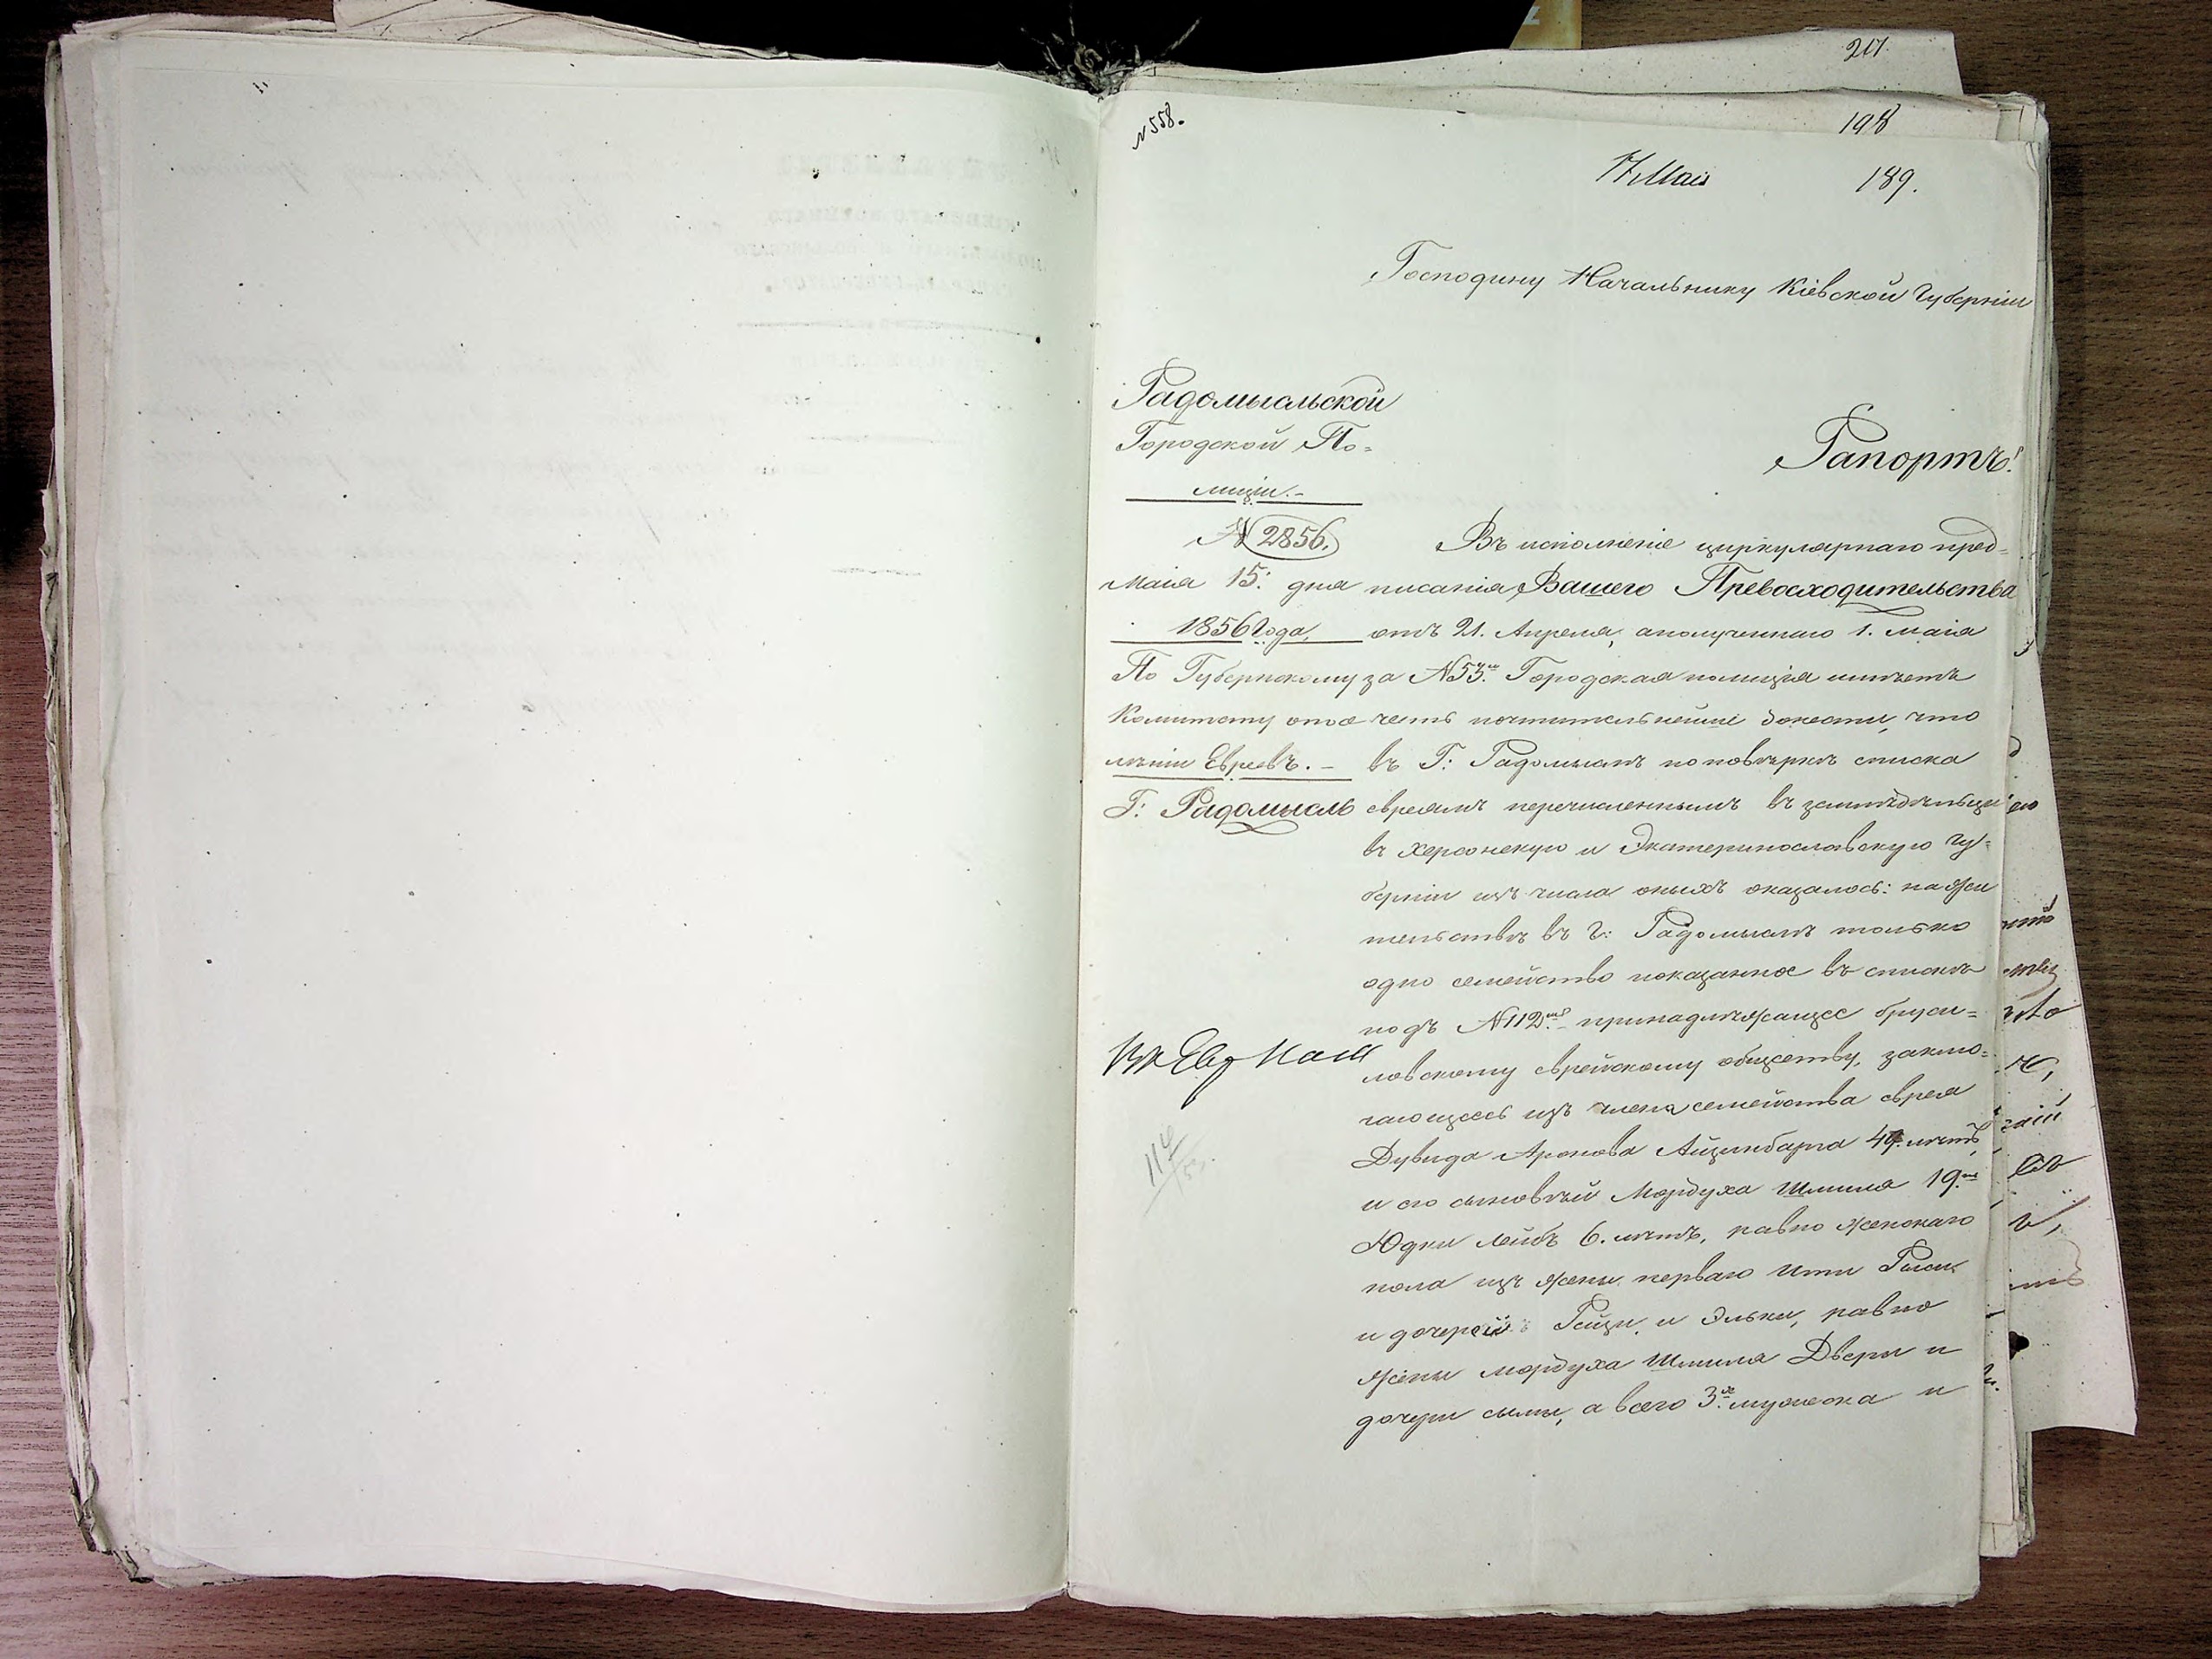 217.
198
N 558.
17 Мая 189.
Господину Начальнику Кіевской Губерніи
Радомысльской
Городской По=
лиціи.-
N 2856.
Маія 15. дня
1856 Года
По Губернскому
Комитету о посе
леніи Евреевъ. -
Г: Радомысль
Рапортъ.
Въ исполненіе циркулярнаго пред=
писанія Вашего Превосходительства
отъ 21. Апреля, а полученнаго 1. маія
за N 53. Городская полиція имѣетъ
честь почтительнейше донести, что
въ Г: Радомыслѣ по повѣркѣ списка
евреямъ перечисленнымъ въ земледѣльцы
въ Херсонскую и Экатеринославскую Гу=
берніи изъ числа оныхъ оказалось: на жи
тельствѣ въ г: Радомыслѣ только
одно семейство показанное въ спискѣ
подъ N 112 принадлѣжащее бруси=
ловскому еврейскому обществу, заклю=
чающееся изъ члена семейства еврея
Дувида Аронова Айзинбарга 49. лѣтъ,
и его сыновѣй Мордуха Шмиля 19.
Юдки Лейбъ 6. лѣтъ, равно женскаго
пола изъ жены перваго Итти
и дочерей Рейзи и Эльки, равно
жены мордуха Шмиля Двери и
дочери, а всего 3. мужеска и
114